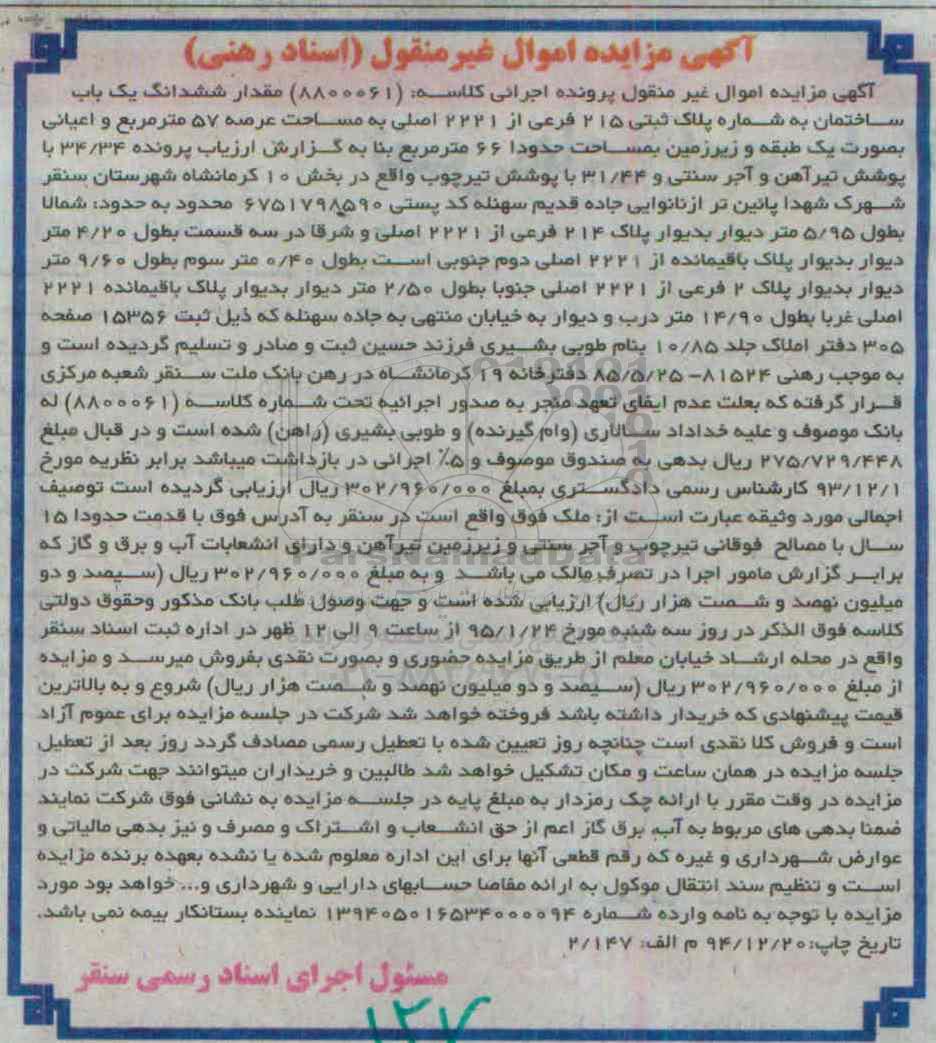 آگهی مزایده اموال غیرمنقول (اسناد رهنی)
آگهی مزایده اموال غیر منقول پرونده اجرائی کلاسه: (۸۸۰۰۰۶۱) مقدار ششدانگ یک باب
ساختمان به شماره پلاک ثبتی ۲۱۵ فرعی از ۲۲۲۱ اصلی به مساحت عرصه ۵۷ مترمربع و اعیانی
بصورت یک طبقه و زیرزمین بمساحت حدودا ۶۶ مترمربع بنا به گزارش ارزیاب پرونده ۳۴/۳۴ با
پوشش تیرآهن و آجر سنتی و ۳۱/۴۴ با پوشش تیرچوب واقع در بخش ۱۰ کرمانشاه شهرستان سنقر
شهرک شهدا پائین تر ازنانوایی جاده قدیم سهنله کد پستی ۶۷۵۱۷۹۸۵۹۰ محدود به حدود: شمالا
بطول ۵/۹۵ متر دیوار بدیوار پلاک ۲۱۴ فرعی از ۲۲۲۱ اصلی و شرقا در سه قسمت بطول ۴/۲۰ متر
دیوار بدیوار پلاک باقیمانده از ۲۲۲۱ اصلی دوم جنوبی است بطول ۰/۴۰ متر سوم بطول ۹/۶۰ متر
دیوار بدیوار پلاک ۲ فرعی از ۲۲۲۱ اصلی جنوبا بطول ۲/۵۰ متر دیوار بدیوار پلاک باقیمانده ۲۲۲۱
اصلی غربا بطول ۱۴/۹۰ متر درب و دیوار به خیابان منتهی به جاده سهنله که ذیل ثبت ۱۵۳۵۶ صفحه
۳۰۵ دفتر املاک جلد ۱۰/۸۵ بنام طوبی بشیری فرزند حسین ثبت و صادر و تسلیم گردیده است و
به موجب رهنی ۸۱۵۲۴- ۸۵/۵/۲۵ دفترخانه ۱۹ کرمانشاه در رهن بانک ملت سنقر شعبه مرکزی
قرار گرفته که بعلت عدم ایفای تعهد منجر به صدور اجرائیه تحت شماره کلاسه (۸۸۰۰۰۶۱) له
بانک موصوف و علیه خداداد سالاری (وام گیرنده) و طوبی بشیری (راهن) شده است و در قبال مبلغ
۲۷۵/۷۲۹/۴۴۸ ریال بدهی به صندوق موصوف و ۵٪ اجرائی در بازداشت میباشد برابر نظریه مورخ
۹۳/۱۲/۱ کارشناس رسمی دادگستری بمبلغ ۳۰۲/۹۶۰/۰۰۰ ریال ارزیابی گردیده است توصیف
اجمالی مورد وثیقه عبارت است از: ملک فوق واقع است در سنقر به آدرس فوق با قدمت حدودا ۱۵
سال با مصالح فوقانی تیرچوب و آجر سنتی و زیرزمین تیرآهن و دارای انشعابات آب و برق و گاز که
برابر گزارش مامور اجرا در تصرف مالک می باشد و به مبلغ ۳۰۲/۹۶۰/۰۰۰ ریال (سیصد و دو
میلیون نهصد و شصت هزار ریال) ارزیابی شده است و جهت وصول طلب بانک مذکور وحقوق دولتی
کلاسه فوق الذکر در روز سه شنبه مورخ ۹۵/۱/۲۴ از ساعت ۹ الی ۱۲ ظهر در اداره ثبت اسناد سنقر
واقع در محله ارشاد خیابان معلم از طریق مزایده حضوری و بصورت نقدی بفروش میرسد و مزایده
از مبلغ ۳۰۲/۹۶۰/۰۰۰ ریال (سیصد و دو میلیون نهصد و شصت هزار ریال) شروع و به بالاترین
قیمت پیشنهادی که خریدار داشته باشد فروخته خواهد شد شرکت در جلسه مزایده برای عموم آزاد
است و فروش کلا نقدی است چنانچه روز تعیین شده با تعطیل رسمی مصادف گردد روز بعد از تعطیل
جلسه مزایده در همان ساعت و مکان تشکیل خواهد شد طالبین و خریداران میتوانند جهت شرکت در
مزایده در وقت مقرر با ارائه چک رمزدار به مبلغ پایه در جلسه مزایده به نشانی فوق شرکت نمایند
ضمنا بدهی های مربوط به آب، برق گاز اعم از حق انشعاب و اشتراک و مصرف و نیز بدهی مالیاتی و
عوارض شهرداری و غیره که رقم قطعی آنها برای این اداره معلوم شده یا نشده بعهده برنده مزایده
است و تنظیم سند انتقال موکول به ارائه مفاصا حسابهای دارایی و شهرداری و... خواهد بود مورد
مزایده با توجه به نامه وارده شماره ۱۳۹۴۰۵۰۱۶۵۳۴۰۰۰۰۹۴ نماینده بستانکار بیمه نمی باشد.
تاریخ چاپ: ۹۴/۱۲/۲۰ م الف: ۲/۱۴۷
مسئول اجرای اسناد رسمی سنقر
۱۲۷
ParsNamadData